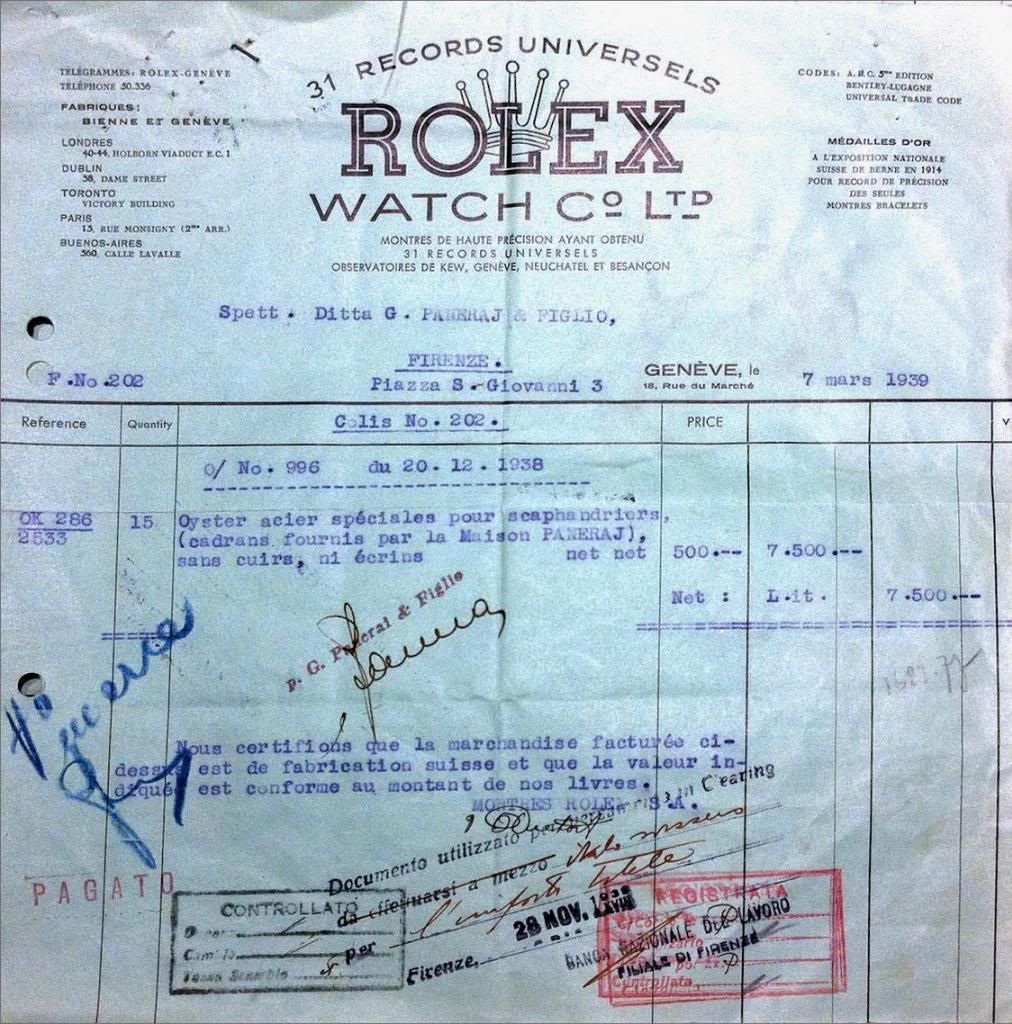 31 RECORDS UNIVERSELS
ROLEX
WATCH Cº LTD
MONTRES DE HAUTE PRÉCISION AYANT OBTENU
31 RECORDS UNIVERSELS
OBSERVATOIRES DE KEW, GENÈVE, NEUCHATEL ET BESANÇON
TÉLÉGRAMMES: ROLEX-GENÈVE
TÉLÉPHONE 50.336
FABRIQUES:
BIENNE ET GENÈVE
LONDRES
40-44, HOLBORN VIADUCT E.C. 1
DUBLIN
38, DAME STREET
TORONTO
VICTORY BUILDING
PARIS
15, RUE MONSIGNY (2me ARR.)
BUENOS-AIRES
360, CALLE LAVALLE
CODES: A.B.C. 5me EDITION
BENTLEY-LUGAGNE
UNIVERSAL TRADE CODE
MÉDAILLES D'OR
A L'EXPOSITION NATIONALE
SUISSE DE BERNE EN 1914
POUR RECORD DE PRÉCISION
DES SEULES
MONTRES BRACELETS
Spett. Ditta G. PANERAJ & FIGLIO,
FIRENZE.
F.No.202 Piazza S.Giovanni 3
GENÈVE, le 7 mars 1939
18, Rue du Marché
Reference Quantity Colis No. 202. PRICE V
O/ No. 996 du 20.12.1938
OK 286 15 Oyster acier spéciales pour scaphandriers,
2533 (cadrans fournis par la Maison PANERAJ),
sans cuirs, ni écrins net net 500.-- 7.500.--
Net : L.it. 7.500.--
p. G. Panerai & Figlio
Nous certifions que la marchandise facturée ci-
dessus est de fabrication suisse et que la valeur in-
diquée est conforme au montant de nos livres.
MONTRES ROLEX S.A.
Documento utilizzato per in Clearing
da effettuarsi a mezzo
per
Firenze,
28 NOV. 1939 XVIII
PAGATO
CONTROLLATO
REGISTRATA
BANCA NAZIONALE DEL LAVORO
FILIALE DI FIRENZE
Controllata